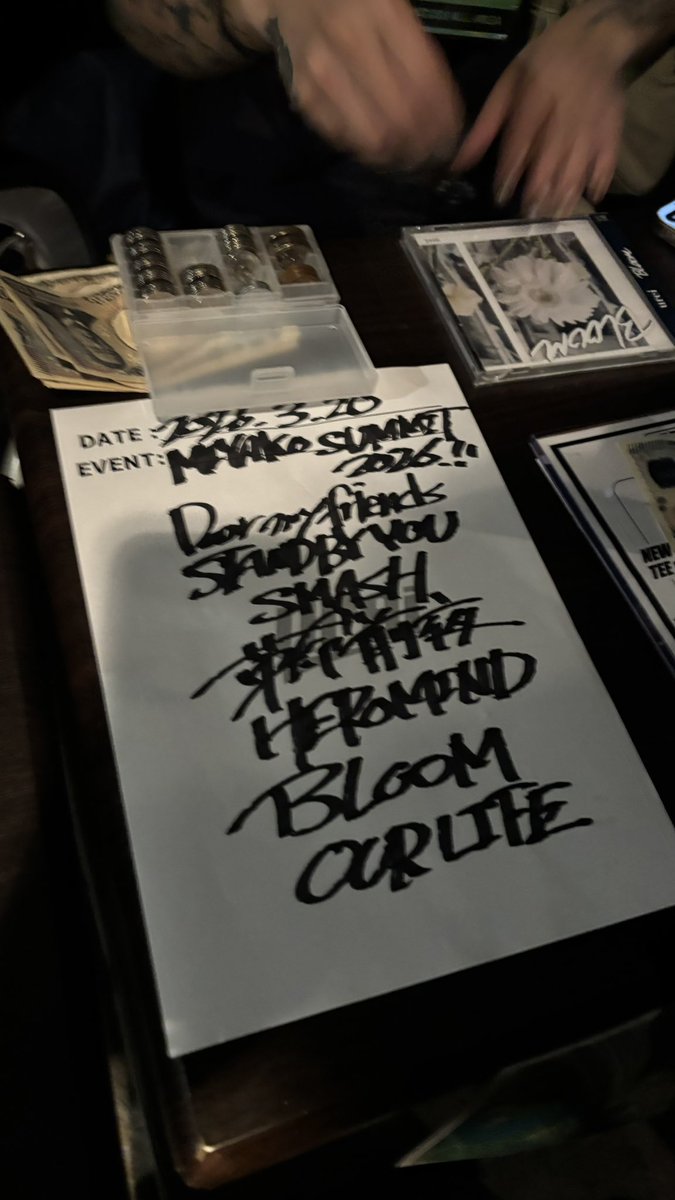 DATE: 2026.3.20
EVENT: MIYAKO SUMMIT
2026!!
Dear my friends
STAND BY YOU
SMASH
HEROMIND
BLOOM
OUR LIFE
BLOOM
Bloom
NEW
TEE